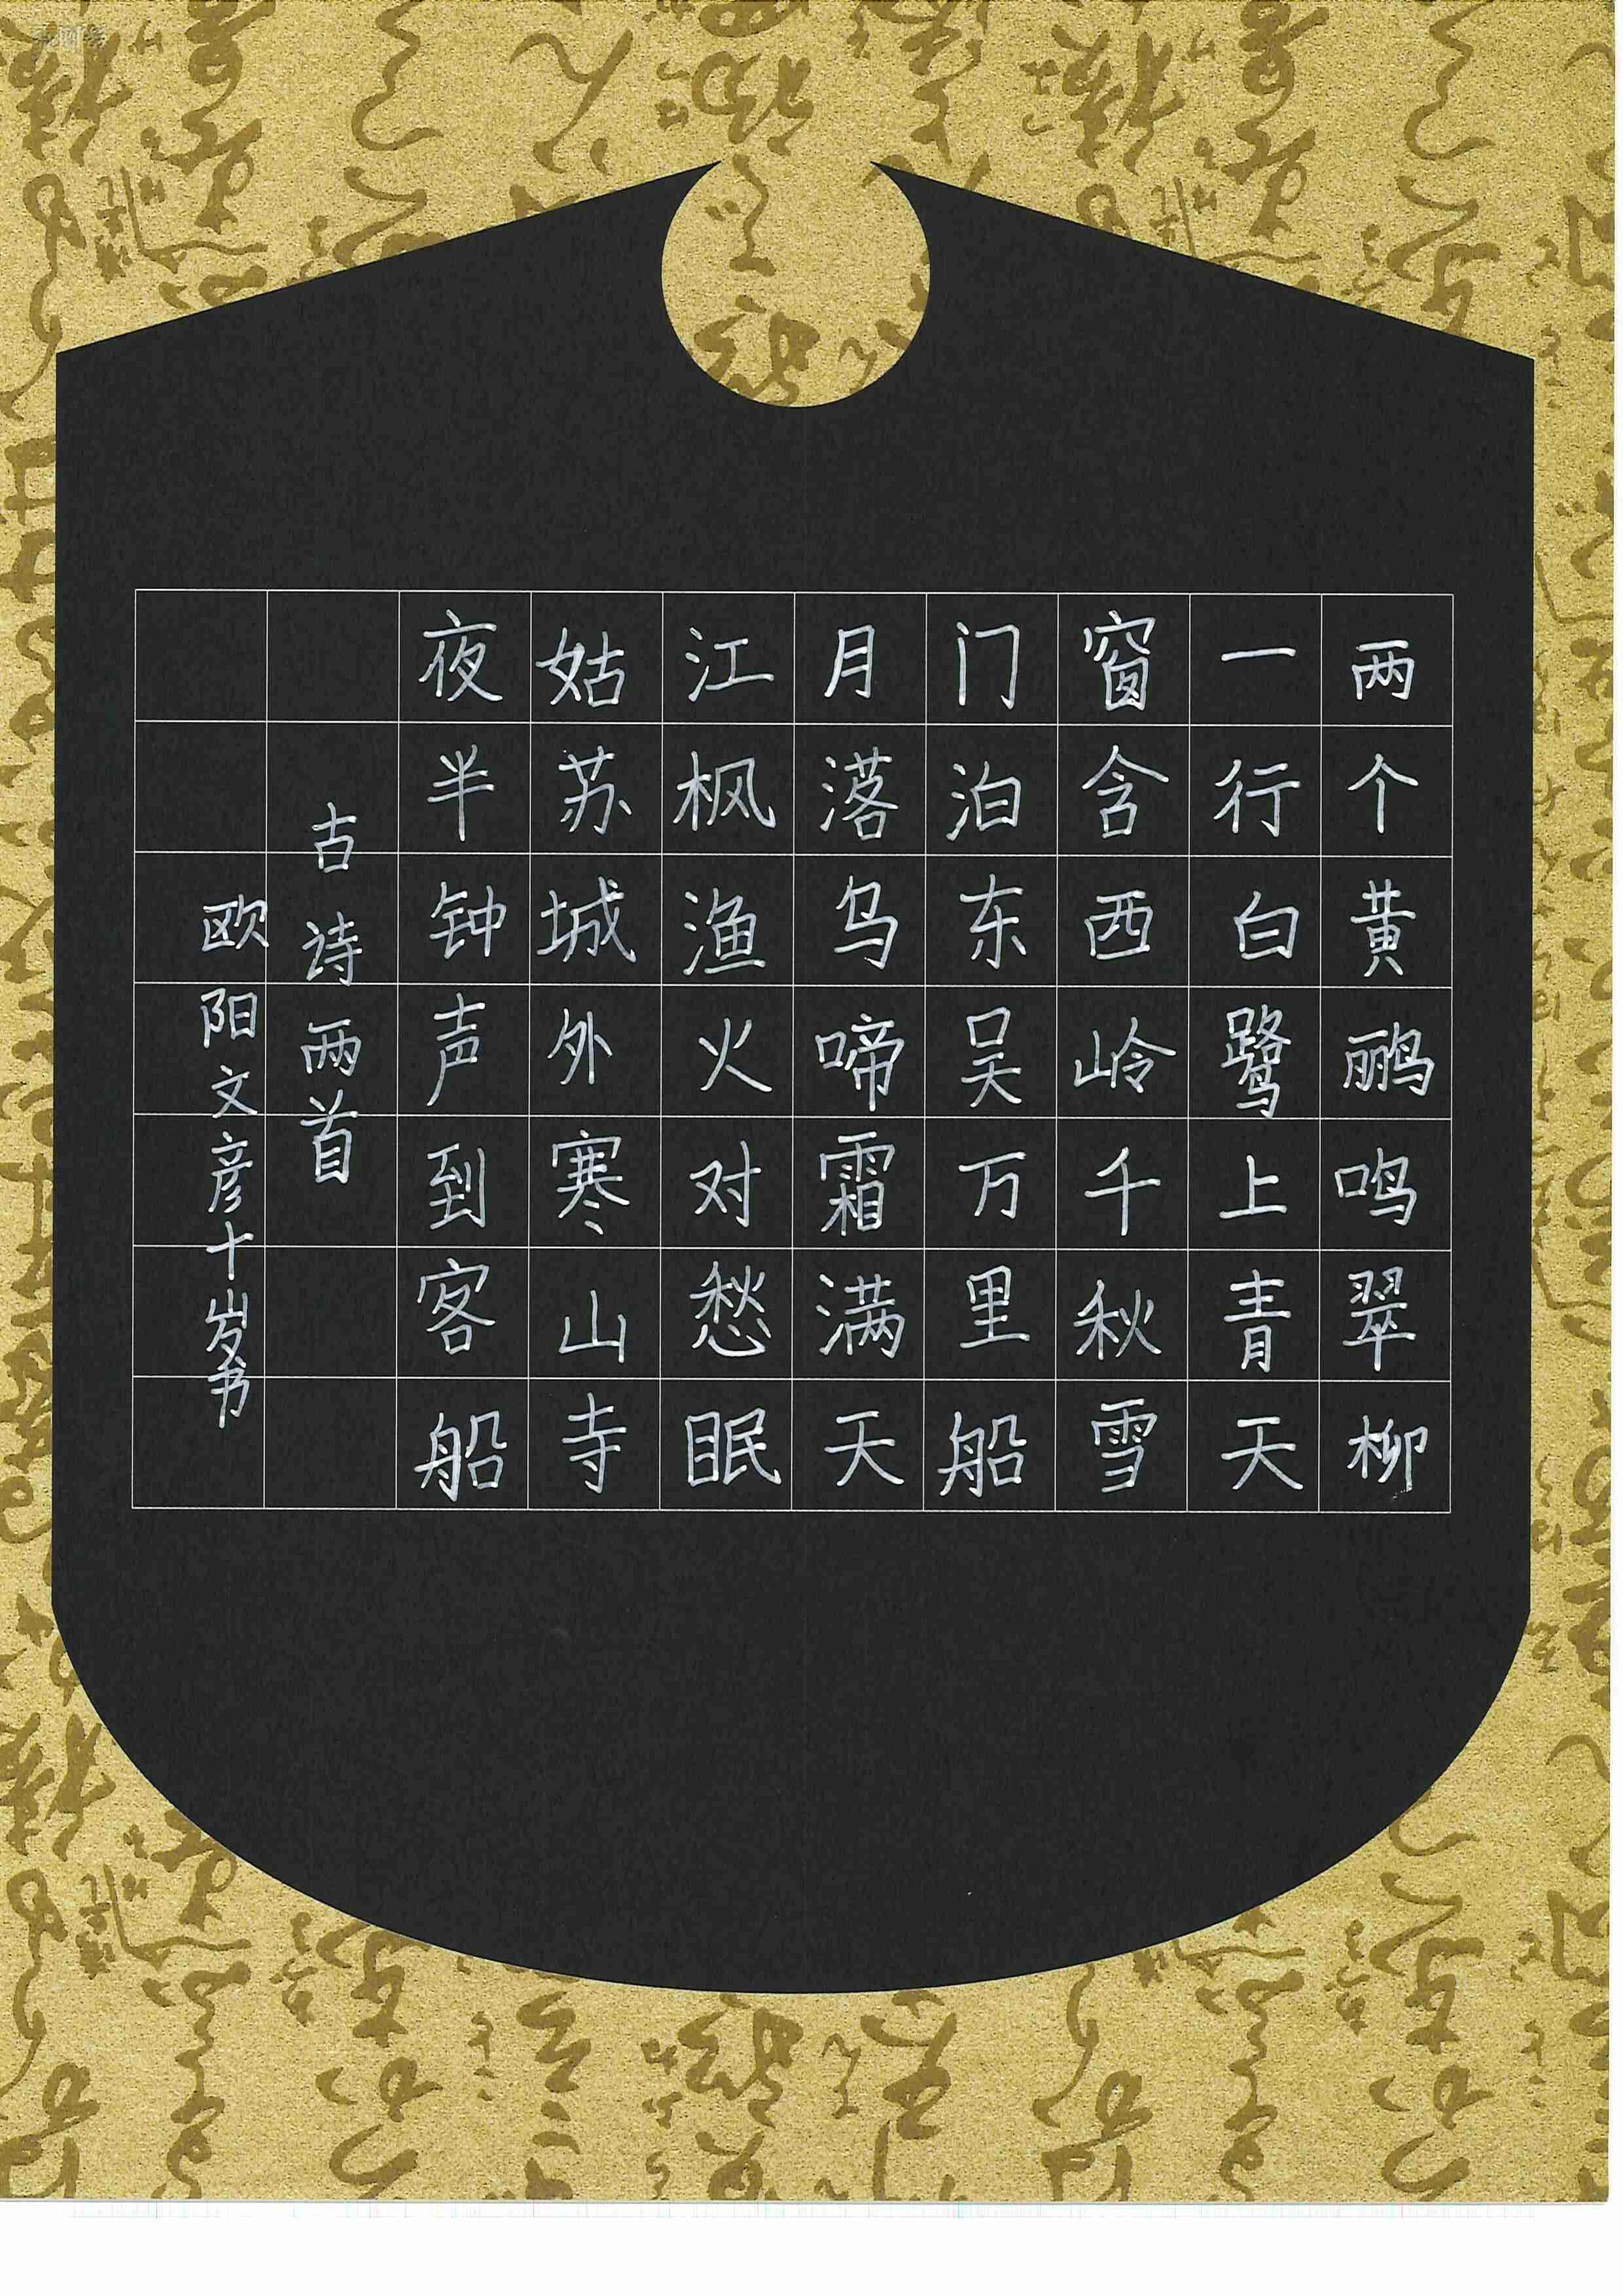 两个黄鹂鸣翠柳
一行白鹭上青天
窗含西岭千秋雪
门泊东吴万里船
月落乌啼霜满天
江枫渔火对愁眠
姑苏城外寒山寺
夜半钟声到客船
古诗两首
欧阳文彦十岁书